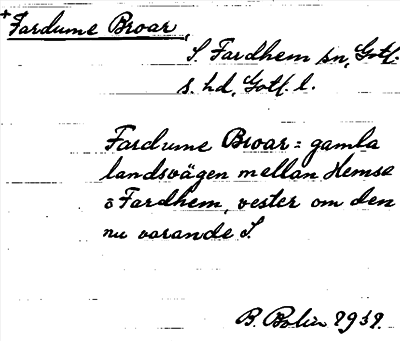 +Fardume Broar,
S. Fardhem sn, Gotl.
s. hd, Gotl. l.
Fardume Broar = gamla
landsvägen mellan Hemse
o Fardhem, vester om den
nu varande S.
B. Bolin 1939.